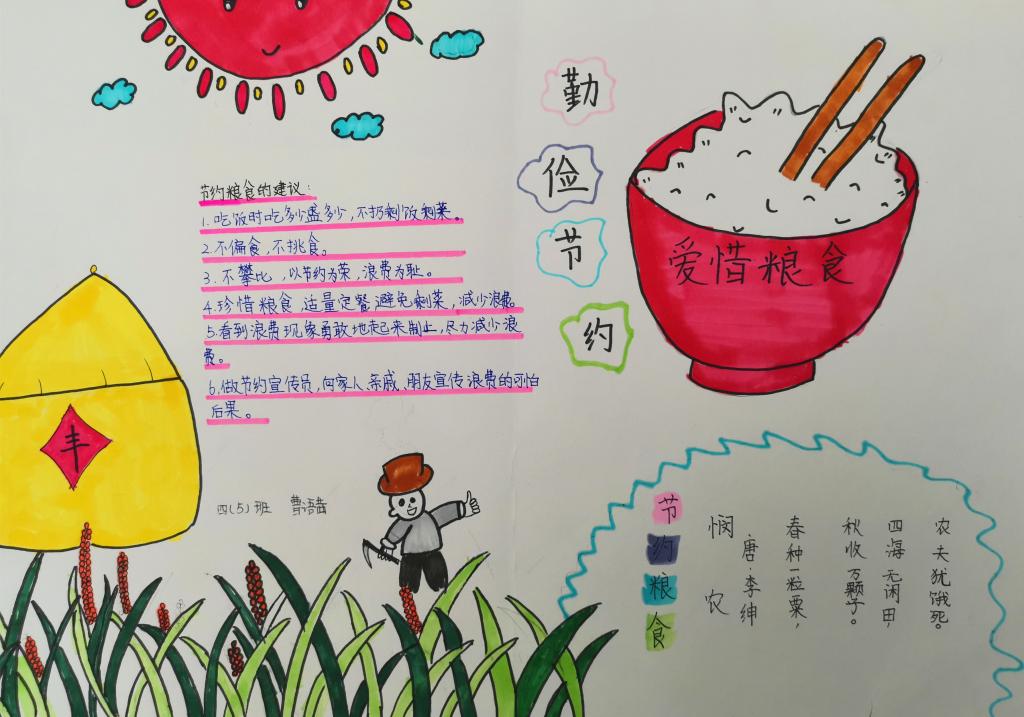 勤
俭
节
约
爱惜粮食
节约粮食的建议:
1.吃饭时吃多少盛多少,不扔剩饭剩菜。
2.不偏食,不挑食。
3.不攀比,以节约为荣,浪费为耻。
4.珍惜粮食,适量定餐,避免剩菜,减少浪费。
5.看到浪费现象勇敢地起来制止,尽力减少浪
费。
6.做节约宣传员,向家人、亲戚、朋友宣传浪费的可怕
后果。
丰
四(5)班
节约粮食
悯农
唐·李绅
春种一粒粟,
秋收万颗子。
四海无闲田,
农夫犹饿死。